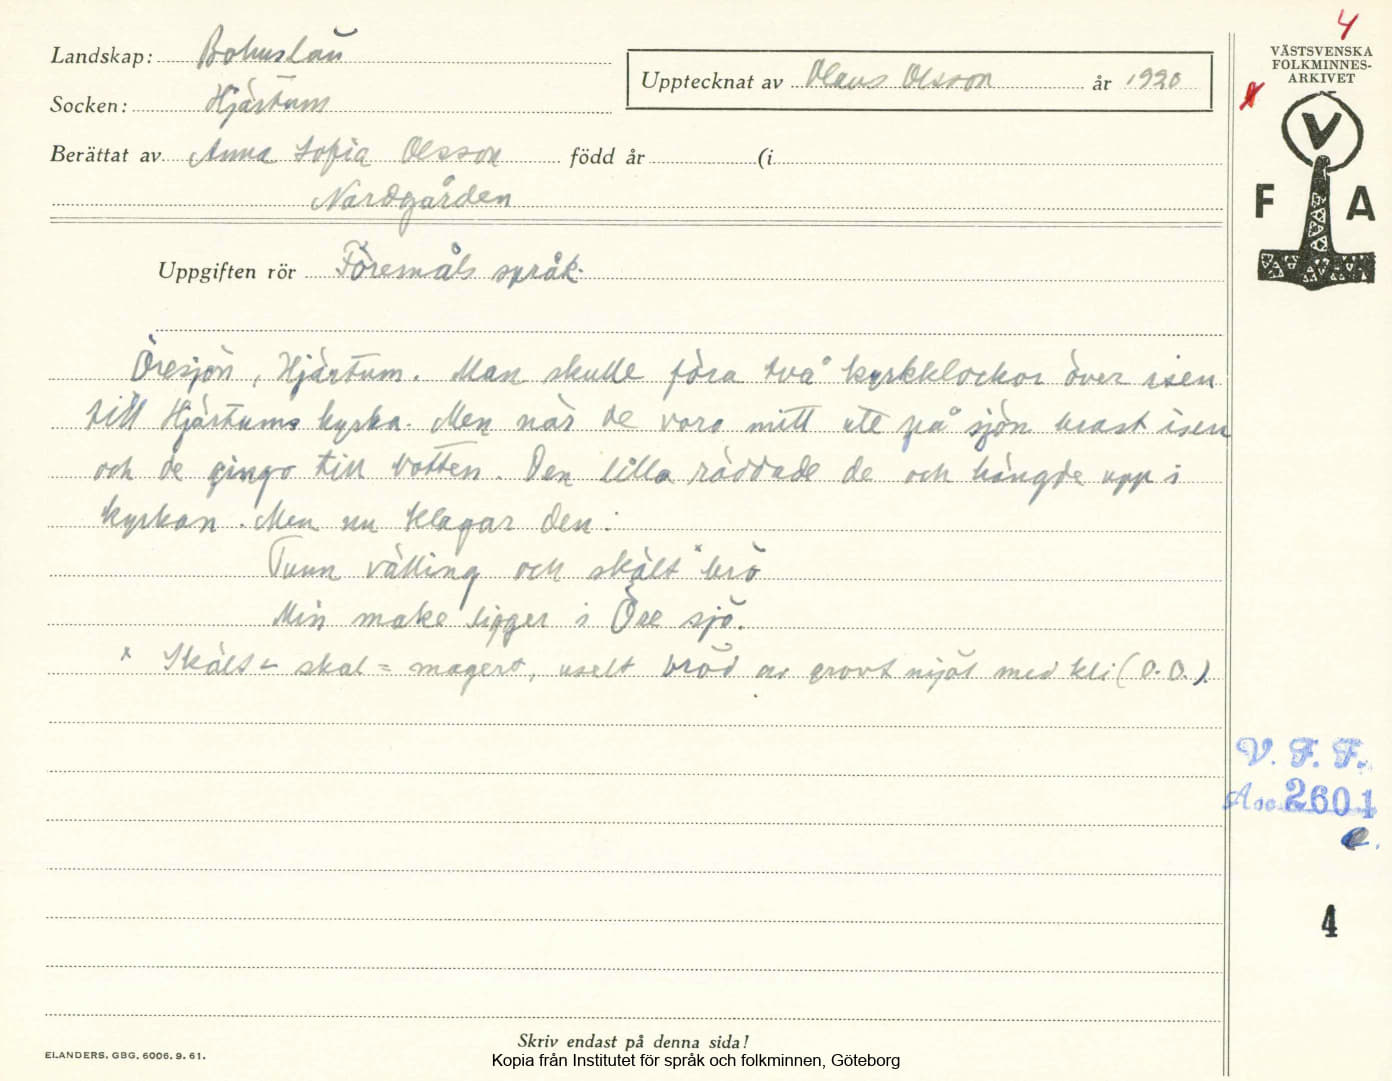 4
Landskap: Bohuslän
Socken: Hjärtum
Upptecknat av Olaus Olsson år 1920
VÄSTSVENSKA
FOLKMINNES-
ARKIVET
V
F A
Berättat av Anna Sofia Olsson född år (i
Nordgården
Uppgiften rör Föremåls språk.
Öresjön, Hjärtum. Man skulle föra två kyrkklockor över isen
till Hjärtums kyrka. Men när de voro mitt ute på sjön brast isen
och de gingo till botten. Den lilla räddade de och hängde upp i
kyrkan. Men nu klagar den:
Tunn välling och skält x brö
Min make ligger i Öre sjö.
x Skält = skal = magert, uselt bröd av grovt mjöl med kli (O.O.).
V. F. F.
Acc. 2601
4
Skriv endast på denna sida!
ELANDERS, GBG, 6006. 9. 61.
Kopia från Institutet för språk och folkminnen, Göteborg